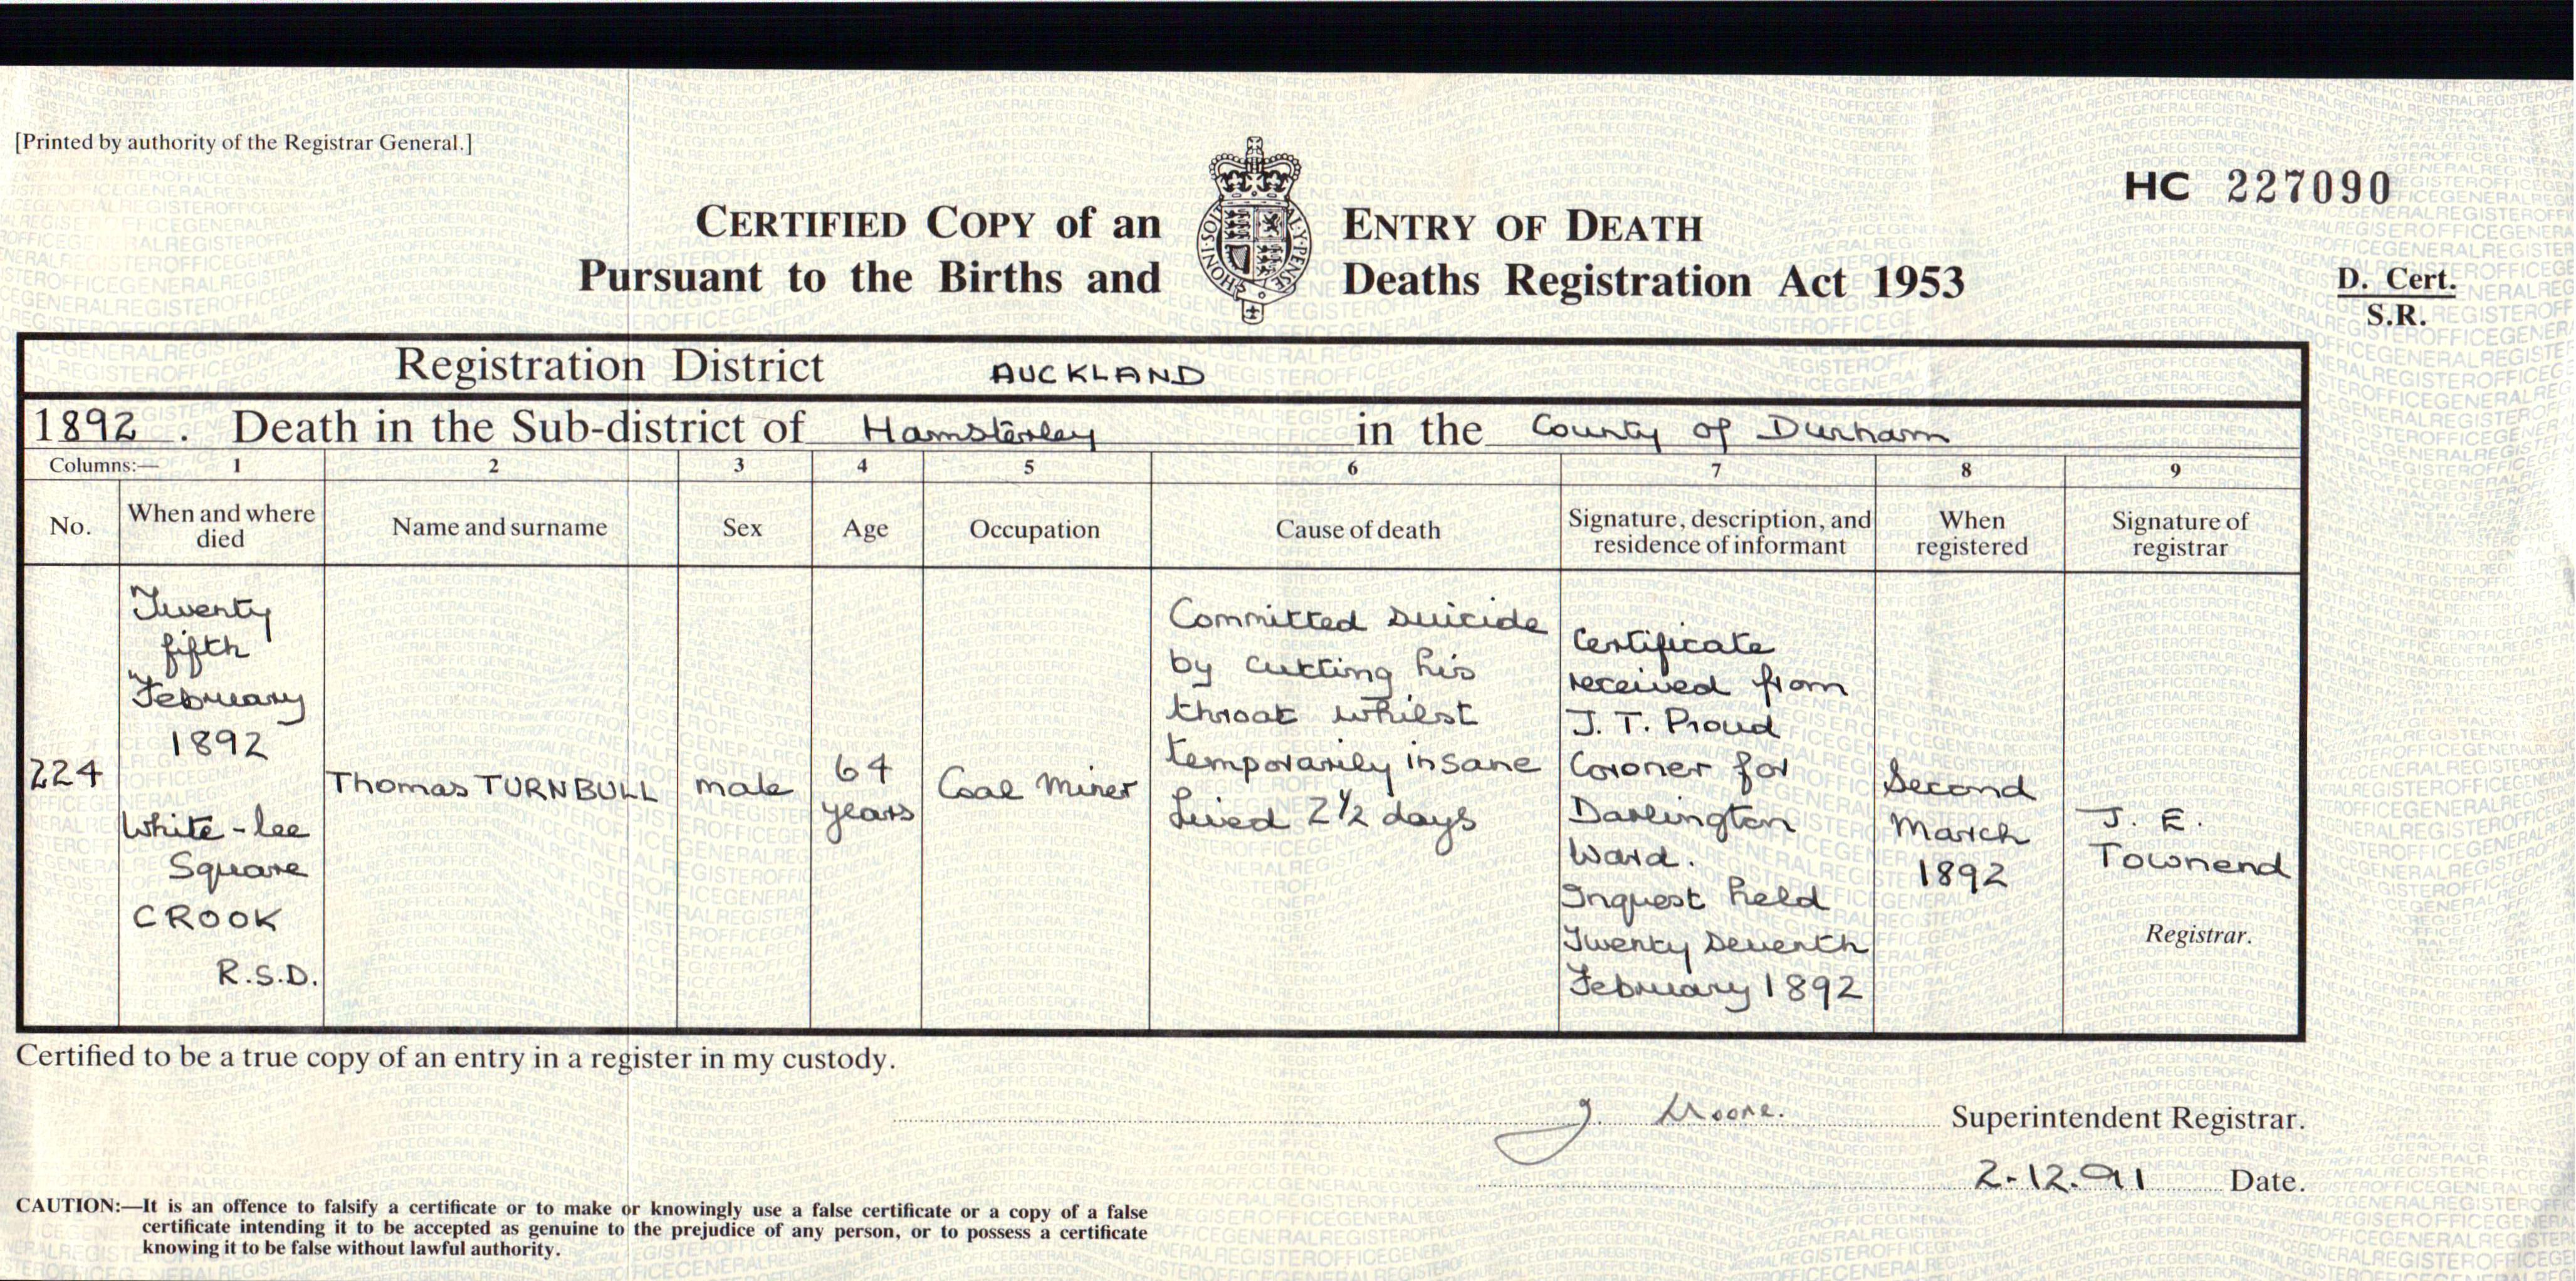 [Printed by authority of the Registrar General.]
HC 227090
CERTIFIED COPY of an ENTRY OF DEATH
Pursuant to the Births and Deaths Registration Act 1953
D. Cert.
S.R.
HONI·SOIT
AL·Y·PENSE
Registration District AUCKLAND
1892. Death in the Sub-district of Hamsterley in the County of Durham
Columns:— 1 2 3 4 5 6 7 8 9
No.
When and where
died
Name and surname
Sex
Age
Occupation
Cause of death
Signature, description, and
residence of informant
When
registered
Signature of
registrar
224
Twenty
fifth
February
1892
White-lee
Square
CROOK
R.S.D.
Thomas TURNBULL
male
64
years
Coal Miner
Committed suicide
by cutting his
throat whilst
temporarily insane
Lived 2½ days
Certificate
received from
J. T. Proud
Coroner for
Darlington
Ward.
Inquest held
Twenty Seventh
February 1892
Second
March
1892
J. E.
Townend
Registrar.
Certified to be a true copy of an entry in a register in my custody.
J. Moore. Superintendent Registrar.
2-12.91 Date.
CAUTION:—It is an offence to falsify a certificate or to make or knowingly use a false certificate or a copy of a false
certificate intending it to be accepted as genuine to the prejudice of any person, or to possess a certificate
knowing it to be false without lawful authority.